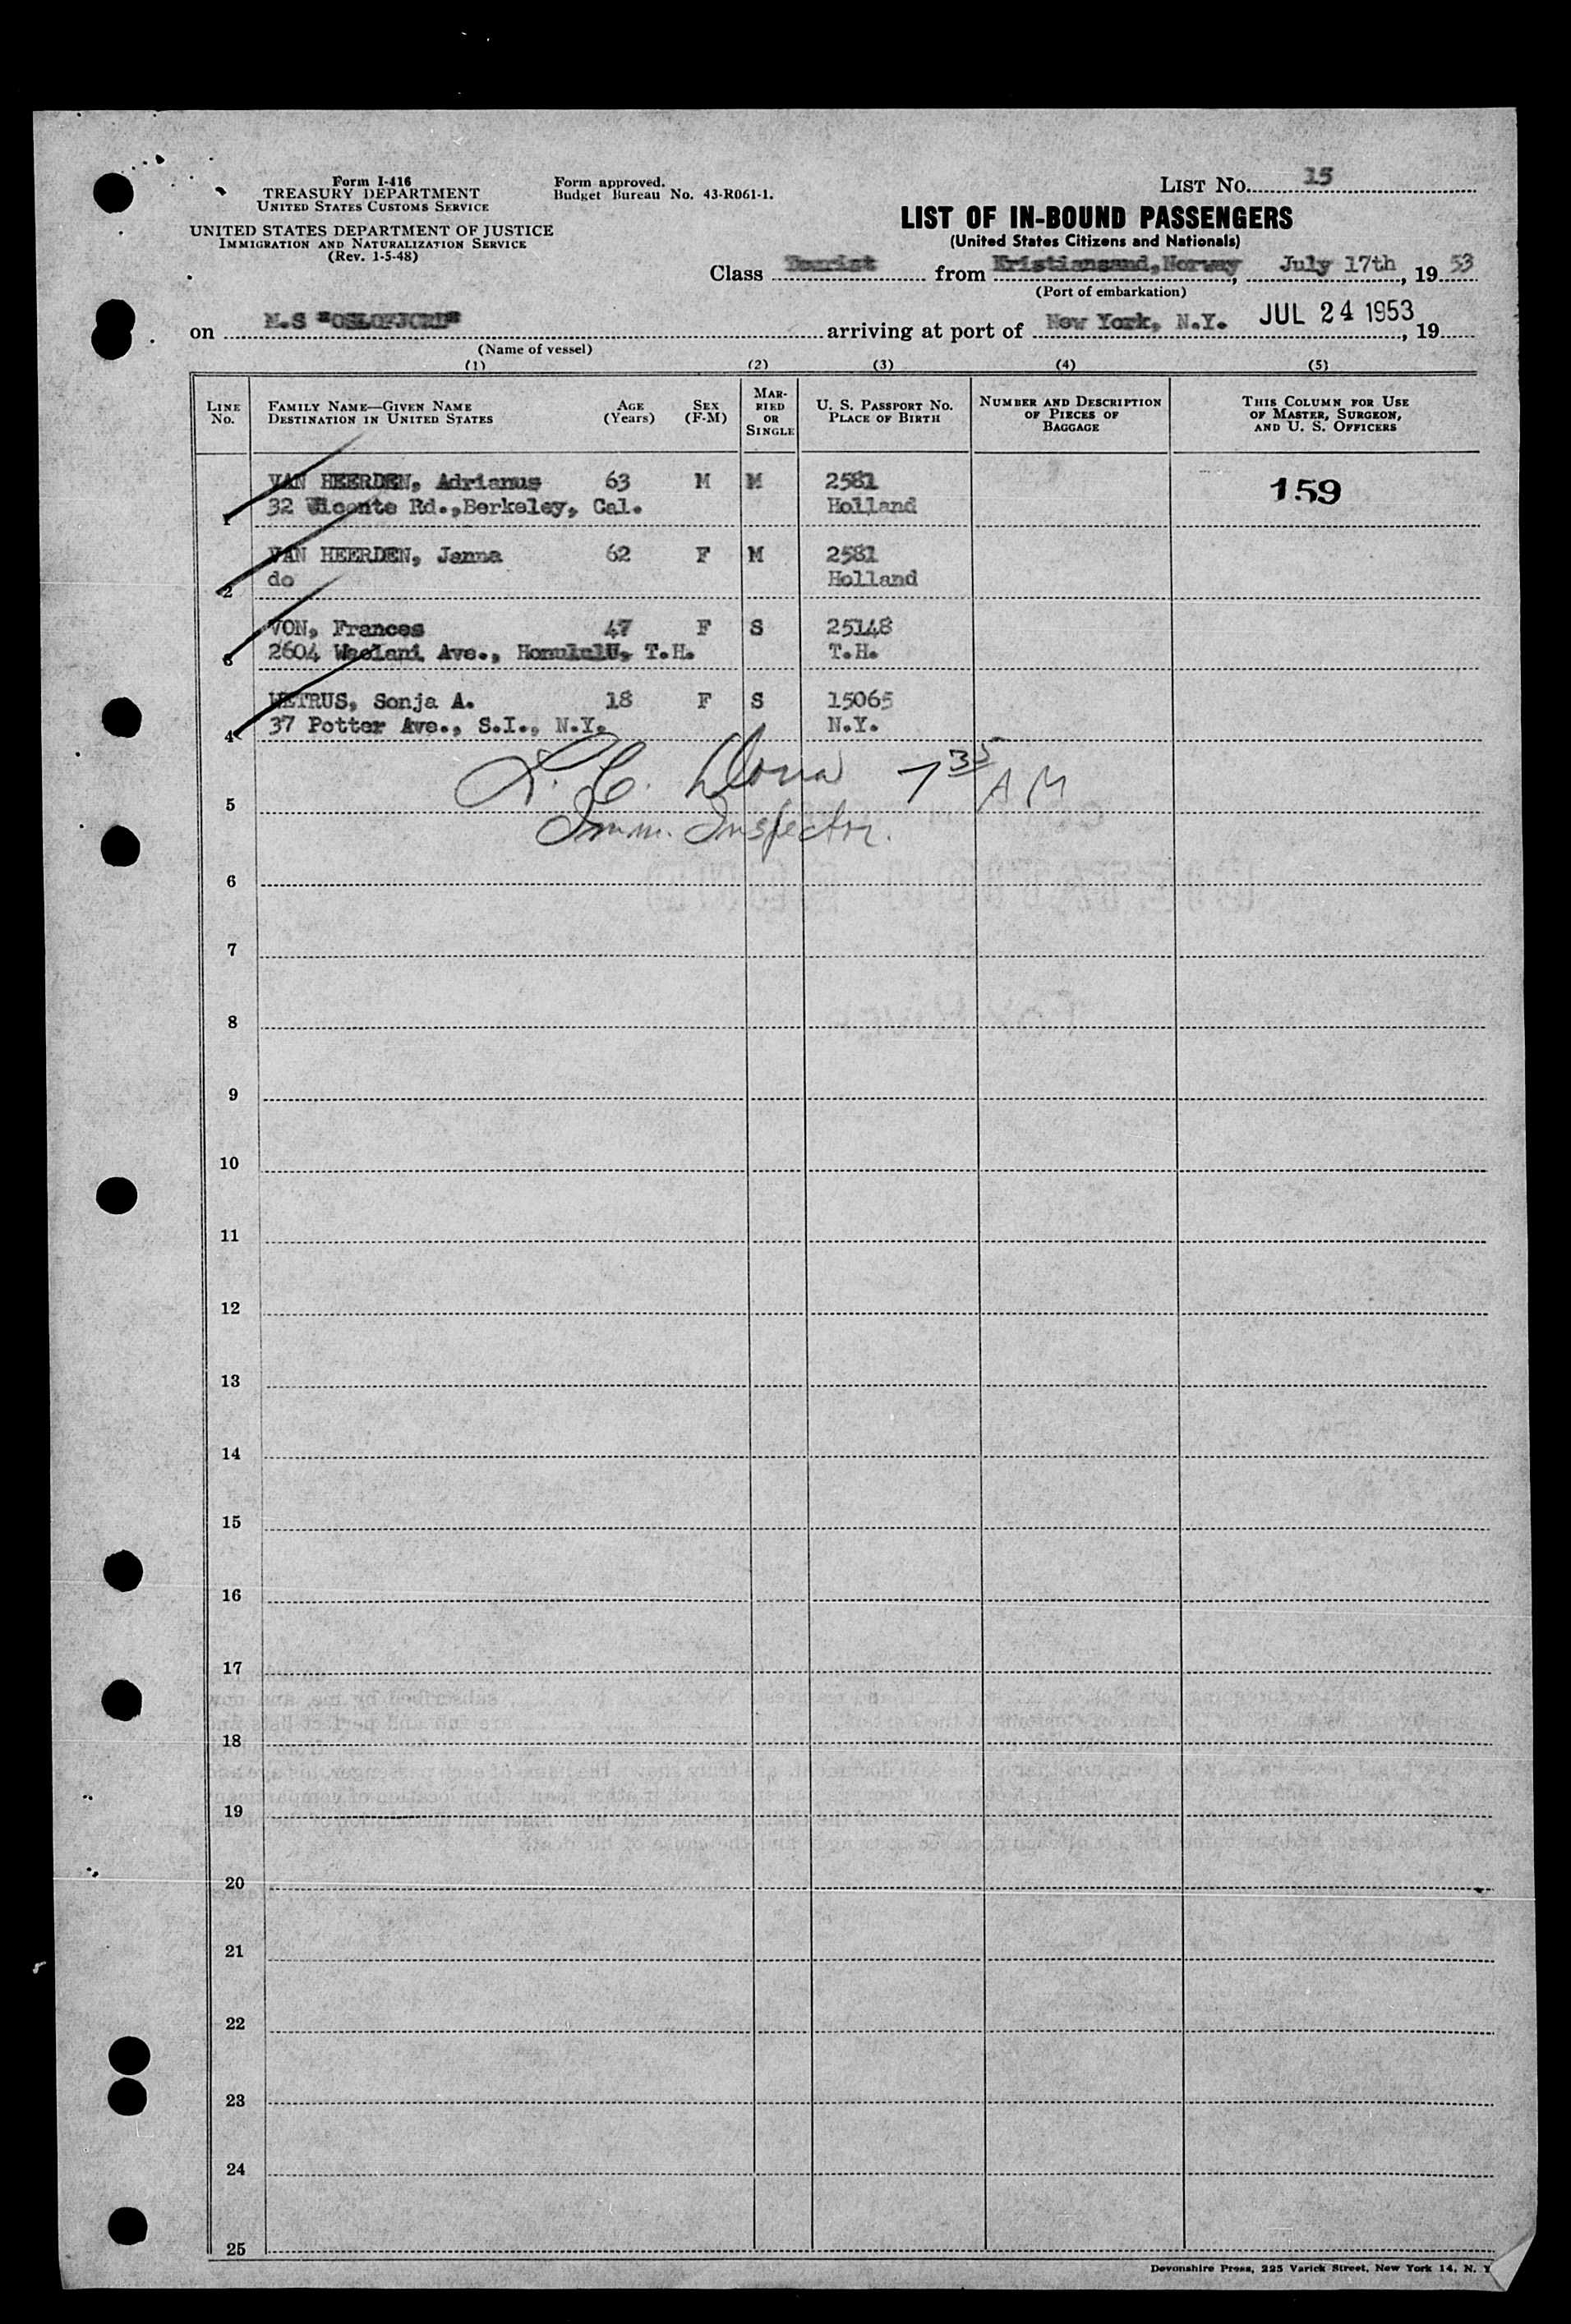 Form I-416
TREASURY DEPARTMENT
UNITED STATES CUSTOMS SERVICE
UNITED STATES DEPARTMENT OF JUSTICE
IMMIGRATION AND NATURALIZATION SERVICE
(Rev. 1-5-48)
Form approved.
Budget Bureau No. 43-R061-1.
LIST No. 15
LIST OF IN-BOUND PASSENGERS
(United States Citizens and Nationals)
Class Tourist from Kristiansand, Norway, July 17th, 19 53
(Port of embarkation)
on M.S "OSLOFJORD" arriving at port of New York, N.Y. JUL 24 1953, 19
(Name of vessel)
(1) (2) (3) (4) (5)
LINE No. FAMILY NAME—GIVEN NAME DESTINATION IN UNITED STATES AGE (Years) SEX (F-M) MARRIED OR SINGLE U. S. PASSPORT NO. PLACE OF BIRTH NUMBER AND DESCRIPTION OF PIECES OF BAGGAGE THIS COLUMN FOR USE OF MASTER, SURGEON, AND U. S. OFFICERS
VAN HEERDEN, Adrianus 63 M M 2581 159
1 32 Vicente Rd.,Berkeley, Cal. Holland
VAN HEERDEN, Janna 62 F M 2581
2 do Holland
VON, Frances 47 F S 25148
3 2604 Waolani Ave., HonululU, T.H. T.H.
WETRUS, Sonja A. 18 F S 15065
4 37 Potter Ave., S.I., N.Y. N.Y.
L. C. 7 35 AM
5
Imm. Inspector.
6
7
8
9
10
11
12
13
14
15
16
17
18
19
20
21
22
23
24
25
Devonshire Press, 225 Varick Street, New York 14, N. Y